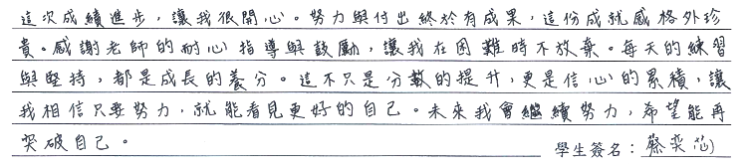 這次成績進步，讓我很開心。努力與付出終於有成果，這份成就感格外珍
貴。感謝老師的耐心指導與鼓勵，讓我在困難時不放棄。每天的練習
與堅持，都是成長的養分。這不只是分數的提升，更是信心的累積，讓
我相信只要努力，就能看見更好的自己。未來我會繼續努力，希望能再
突破自己。
學生簽名：蔡奕芯